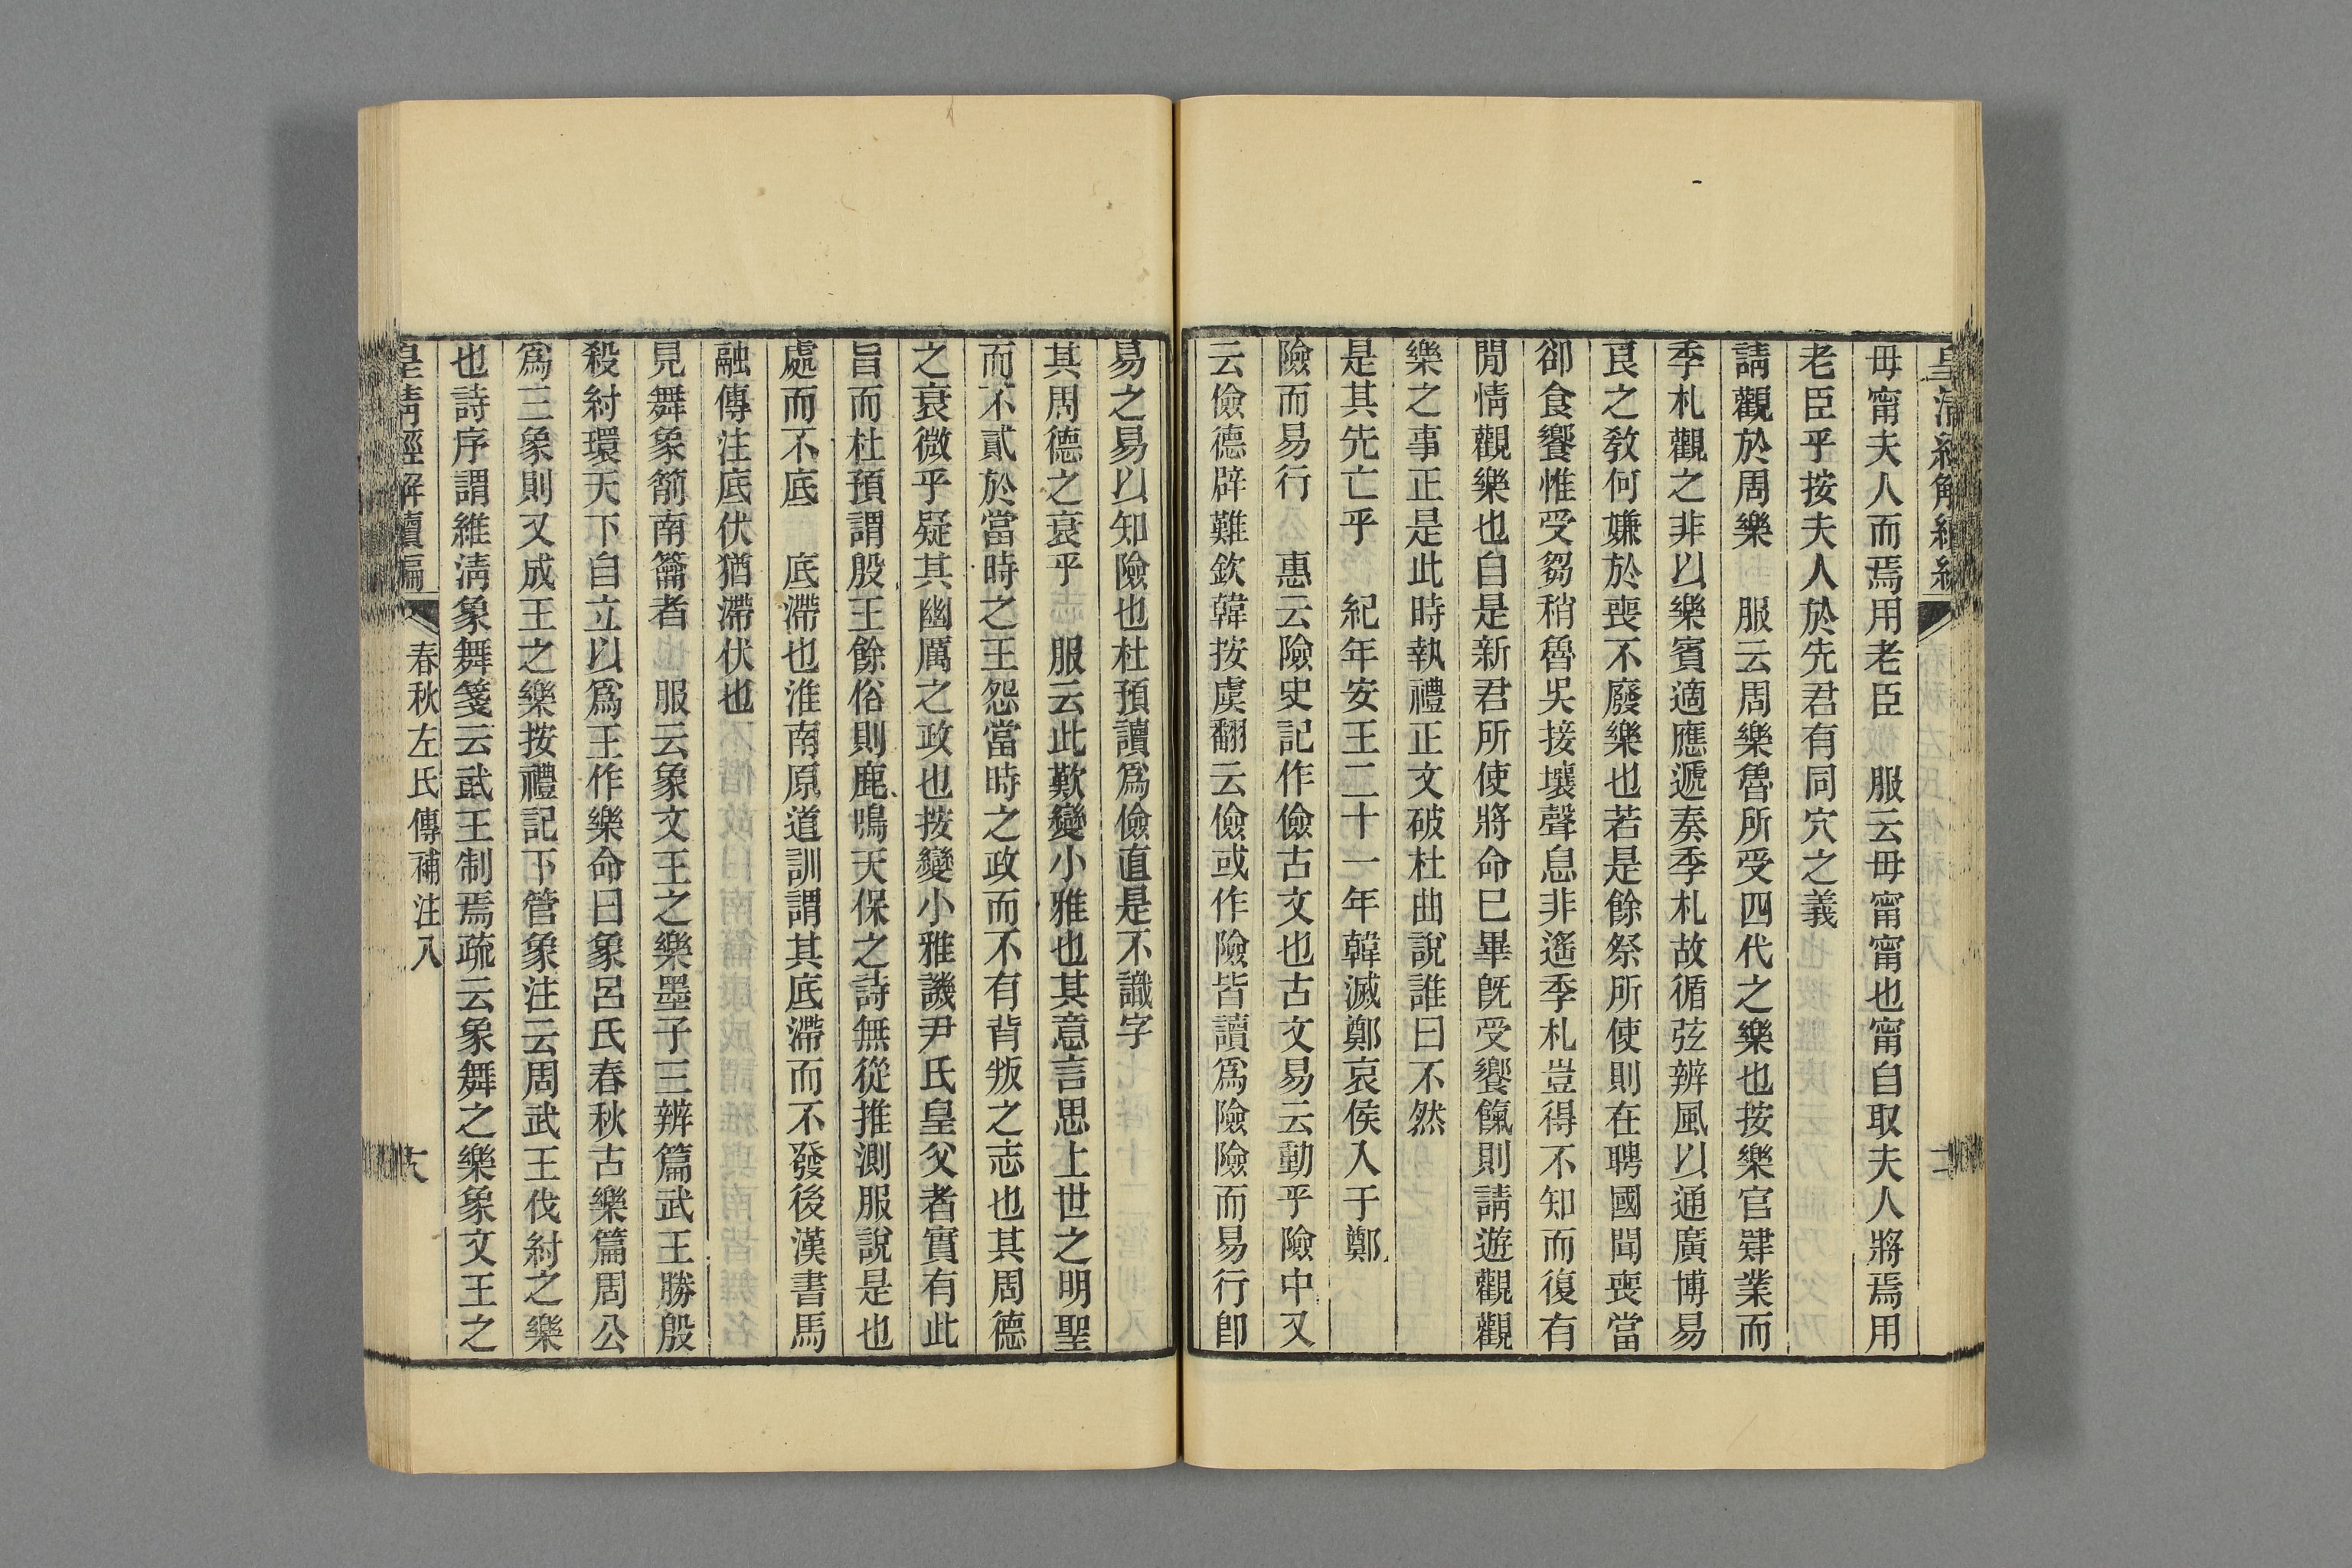 毋甯夫人而焉用老臣　服云毋甯甯也甯自取夫人將焉用
老臣乎按夫人於先君有同穴之義
請觀於周樂　服云周樂魯所受四代之樂也按樂官肄業而
季札觀之非以樂賓適應遞奏季札故循弦辨風以通廣博易
良之敎何嫌於喪不廢樂也若是餘祭所使則在聘國聞喪當
卻食饗惟受芻稍魯吳接壤聲息非遙季札豈得不知而復有
閒情觀樂也自是新君所使將命巳畢旣受饗餼則請遊觀觀
樂之事正是此時執禮正文破杜曲說誰曰不然
是其先亡乎　紀年安王二十一年韓滅鄭哀侯入于鄭
險而易行　惠云險史記作儉古文也古文易云動乎險中又
云儉德辟難欽韓按虞翻云儉或作險皆讀爲險險而易行卽
易之易以知險也杜預讀爲儉直是不識字
其周德之衰乎　服云此歎變小雅也其意言思上世之明聖
而不貳於當時之王怨當時之政而不有背叛之志也其周德
之衰微乎疑其幽厲之政也按變小雅譏尹氏皇父者實有此
旨而杜預謂殷王餘俗則鹿鳴天保之詩無從推測服說是也
處而不底　底滯也淮南原道訓謂其底滯而不發後漢書馬
融傳注底伏猶滯伏也
見舞象箾南籥者　服云象文王之樂墨子三辨篇武王勝殷
殺紂環天下自立以爲王作樂命曰象呂氏春秋古樂篇周公
爲三象則又成王之樂按禮記下管象注云周武王伐紂之樂
也詩序謂維淸象舞箋云武王制焉疏云象舞之樂象文王之
皇淸經解續編
春秋左氏傳補注八